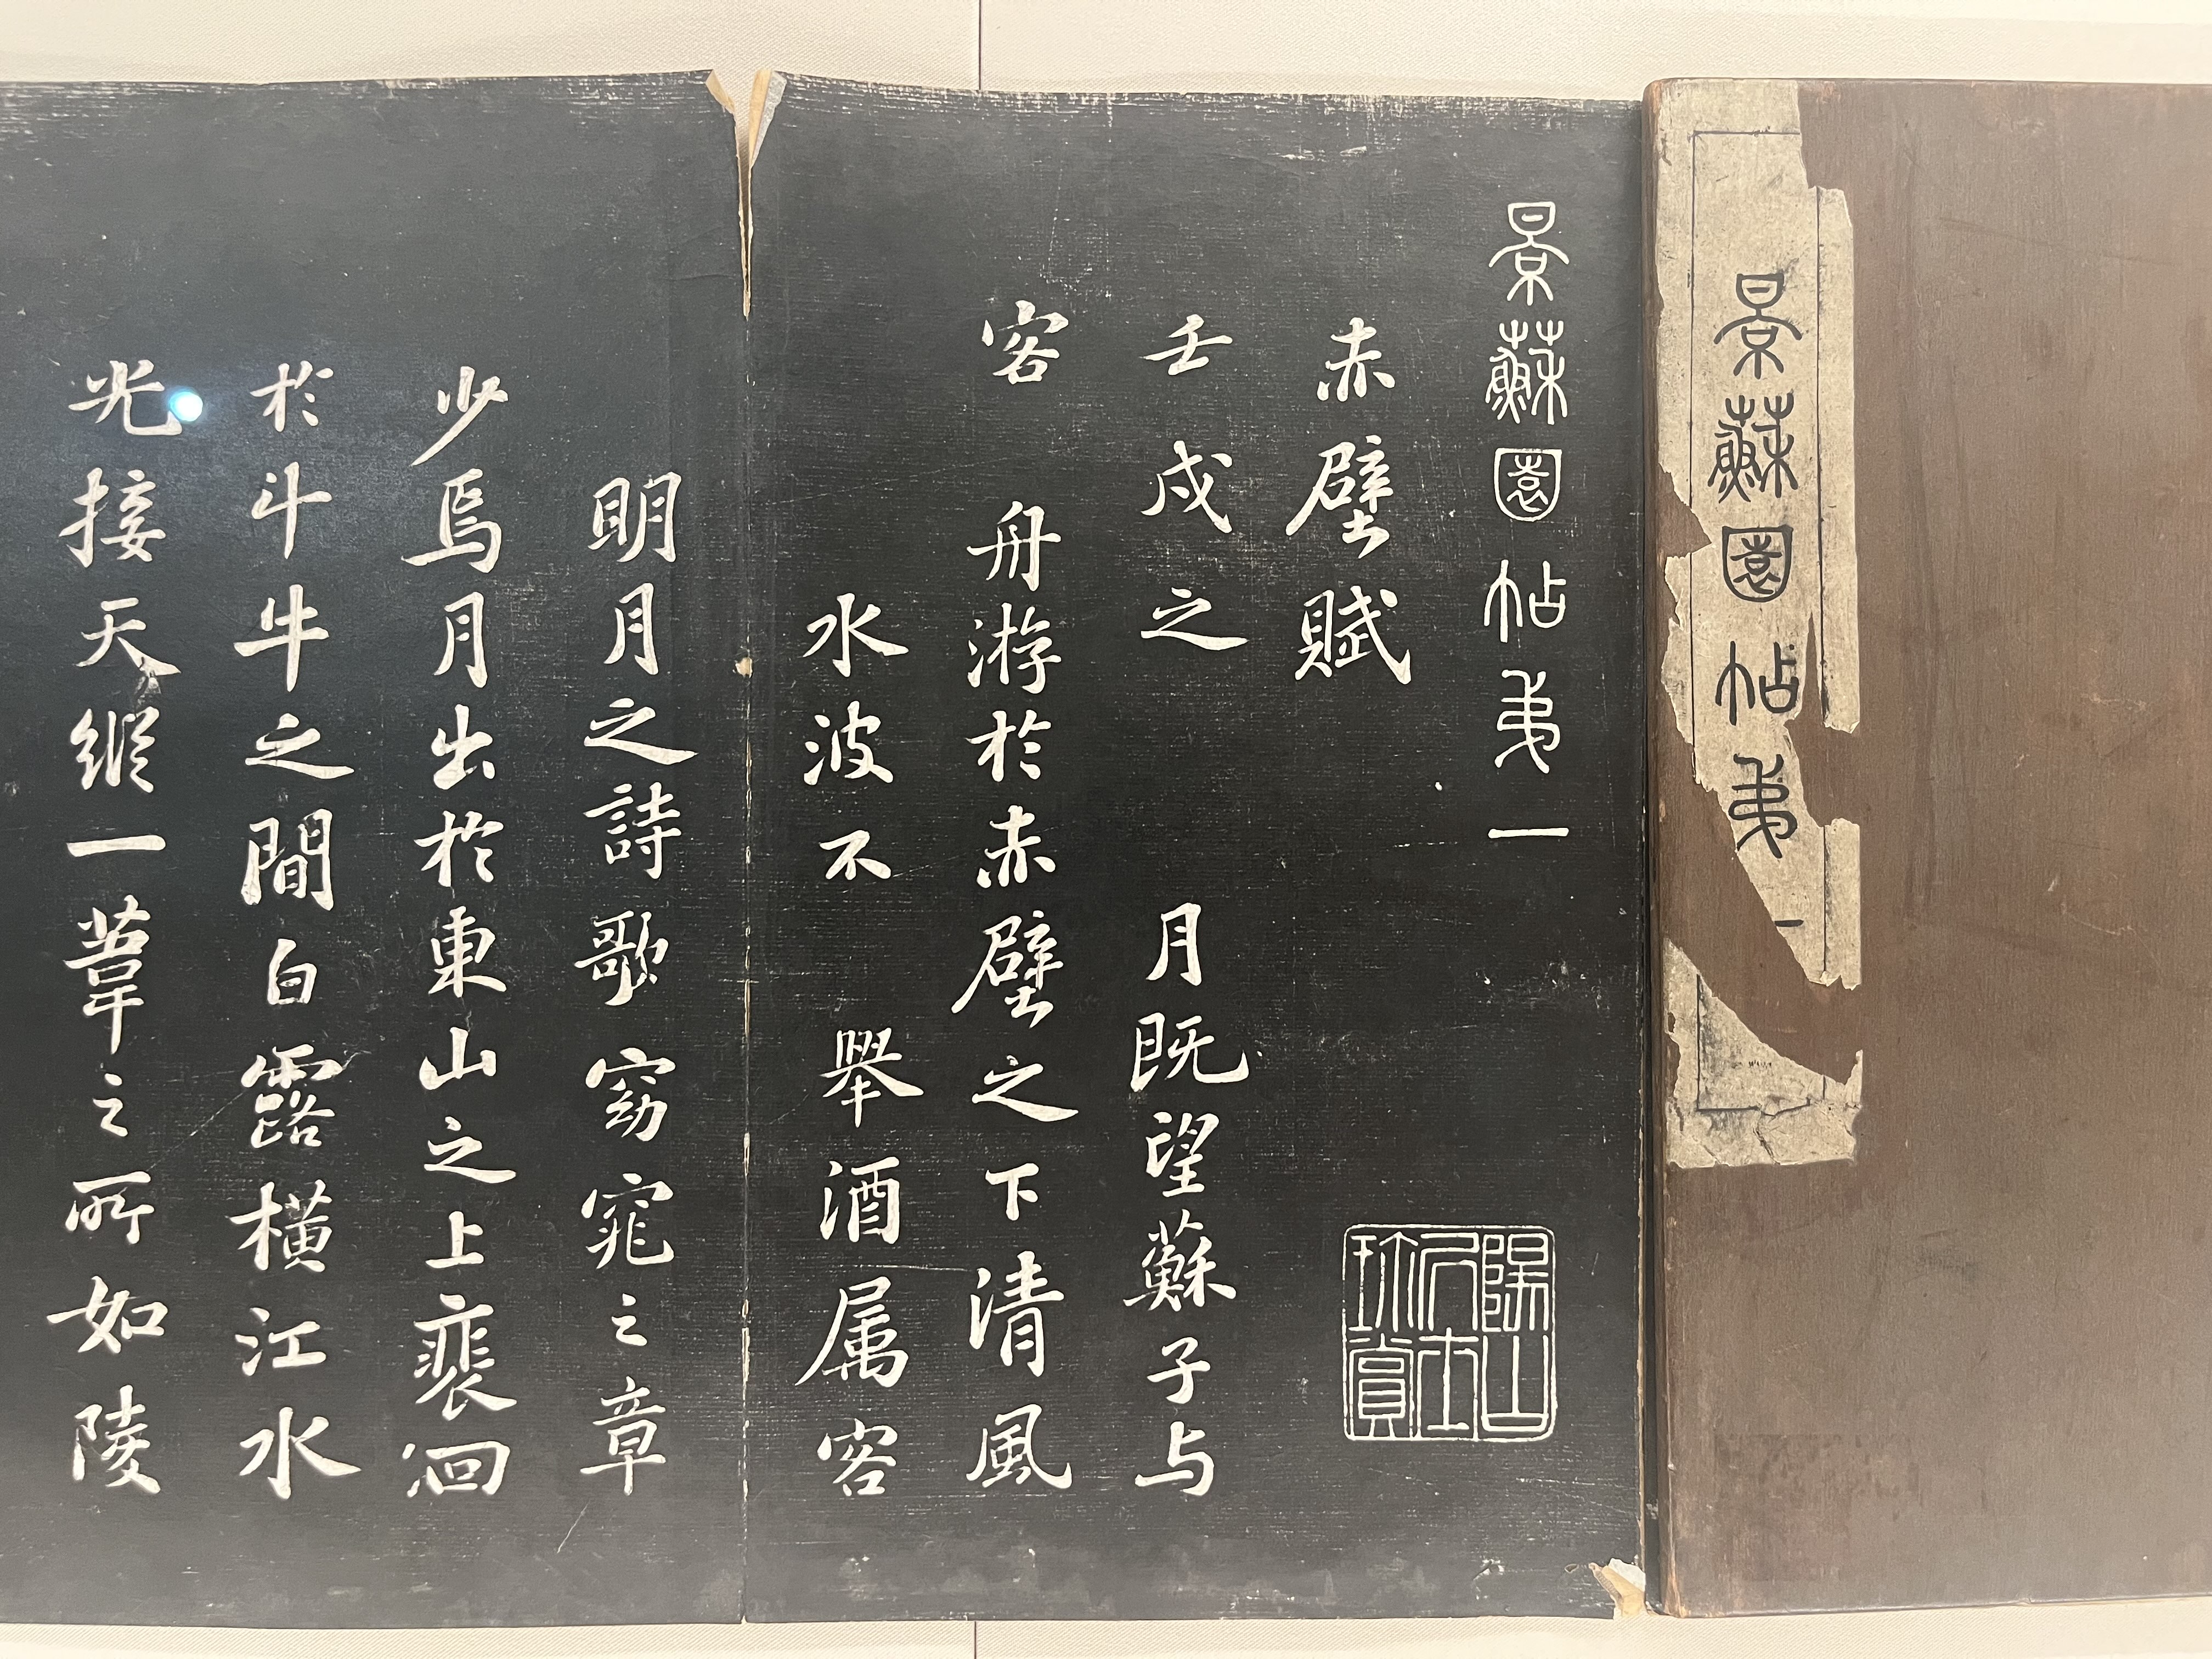 景蘇園帖弟一
景蘇園帖弟一
珎賞
赤壁賦
壬戌之 月既望蘇子与
客 舟游於赤壁之下清風
水波不 舉酒属客
明月之詩歌窈窕之章
少焉月出於東山之上裴徊
於斗牛之間白露橫江水
光接天縱一葦之所如陵